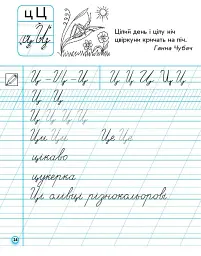 цЦ
цЦ
Цілий день і цілу ніч
цвіркуни кричать на піч.
Ганна Чубач
Ц – Ц – Ц Ц Ц Ц Ц Ц
Ц Ц
Ц Ц Ц Ц
Ци Ци Це Це
цікаво
цукерка
Ці олівці різнокольорові.